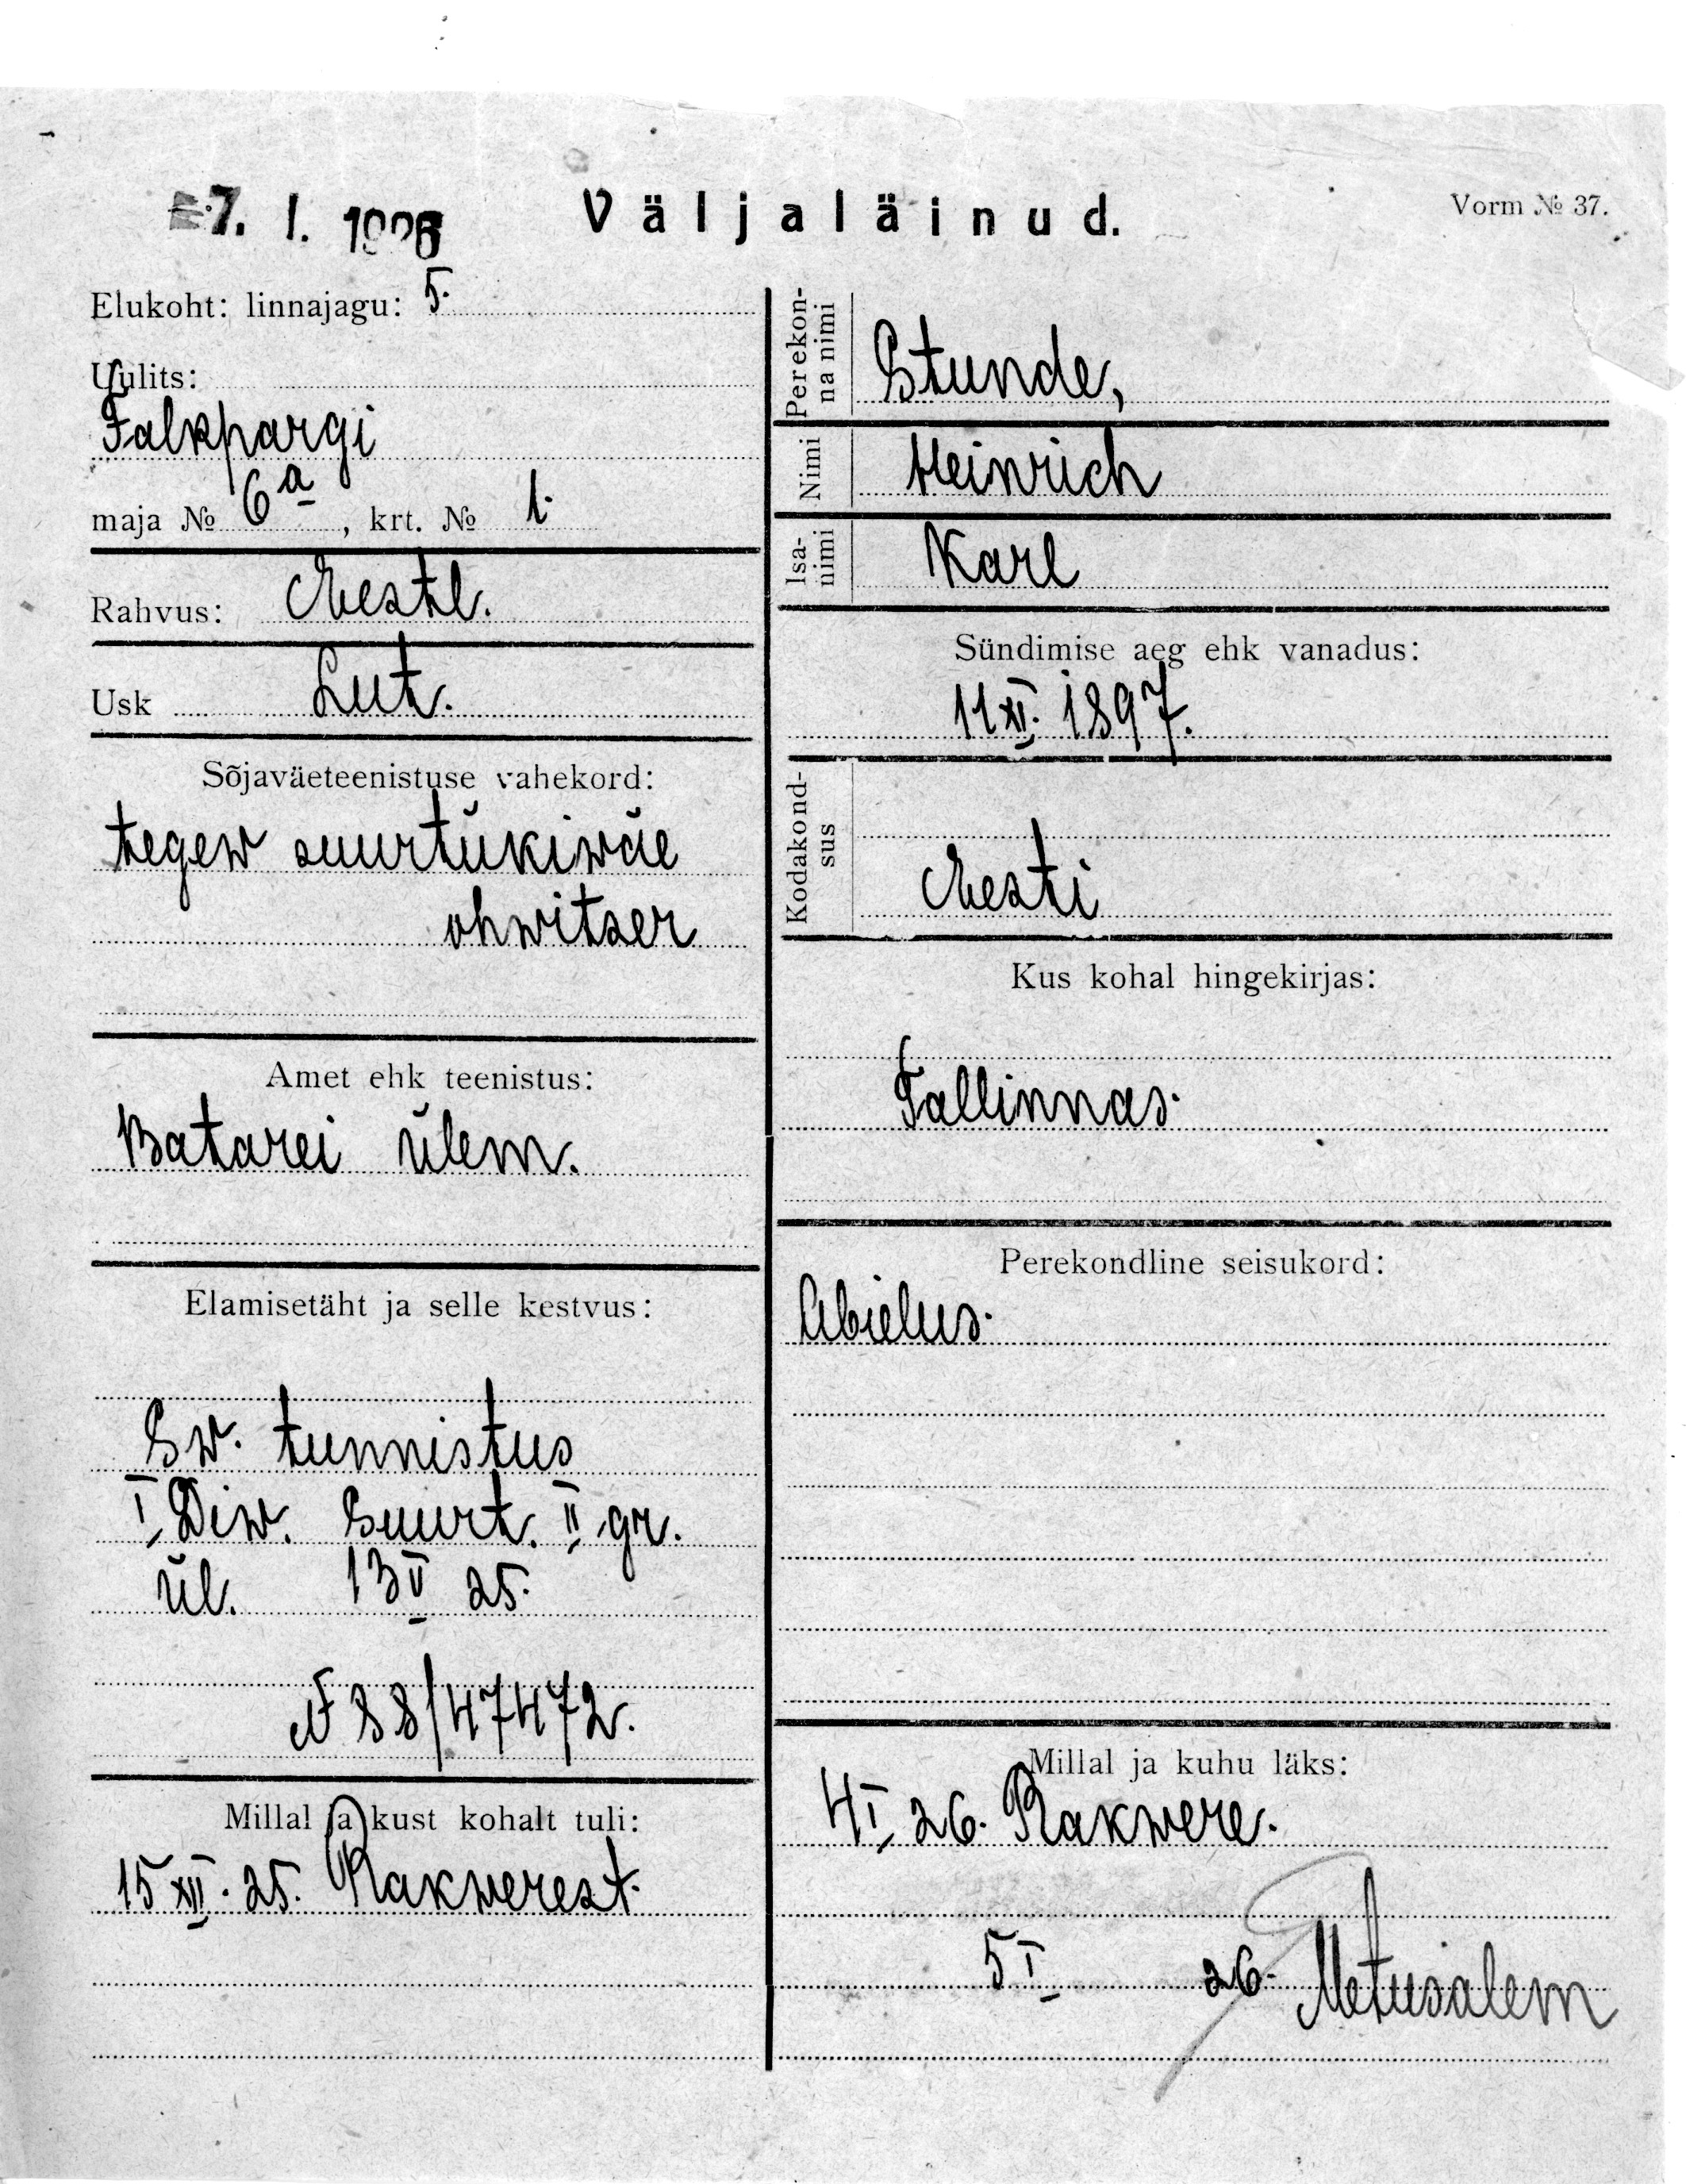 7. I. 1926
Väljaläinud.
Vorm № 37.
Elukoht: linnajagu: 5.
Uulits:
Falkpargi
maja № 6a, krt. № 1.
Rahvus: Eestl.
Usk Lut.
Sõjaväeteenistuse vahekord:
tegew suurtükiwäe
ohwitser
Amet ehk teenistus:
Batarei ülem.
Elamisetäht ja selle kestvus:
Sw. tunnistus
I Diw. Suurt. II gr.
ül. 13 V 25.
№ 88/47472.
Millal ja kust kohalt tuli:
15 XII. 25. Rakwerest.
Perekonna nimi
Stunde,
Nimi
Heinrich
Isanimi
Karl
Sündimise aeg ehk vanadus:
11 XI. 1897.
Kodakondsus
Eesti
Kus kohal hingekirjas:
Tallinnas.
Perekondline seisukord:
Abielus.
Millal ja kuhu läks:
4 I 26. Rakwere.
5 I 26. Metusalem